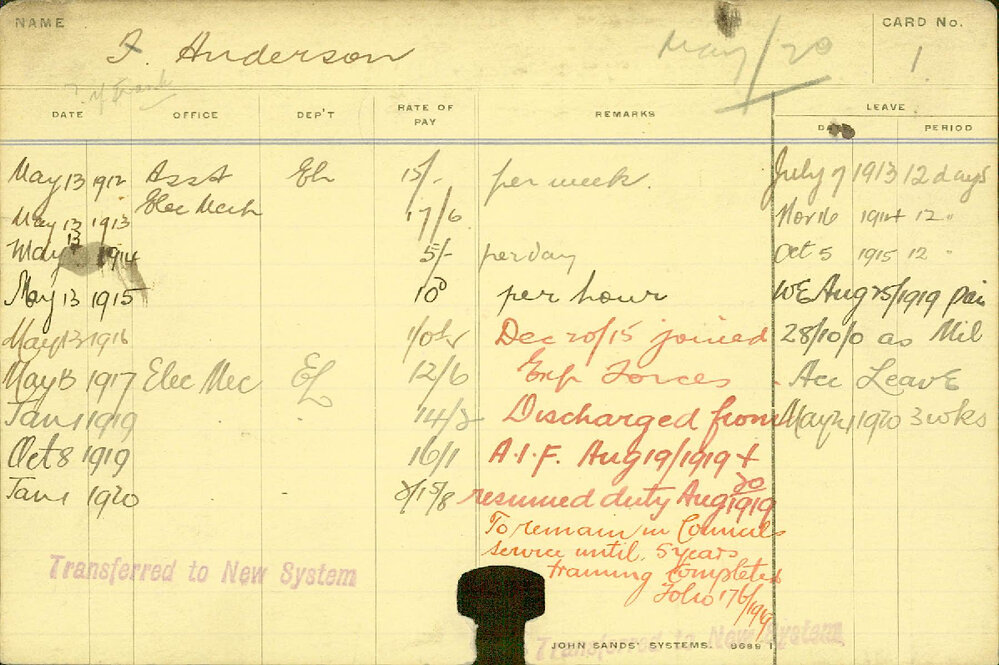 NAME
F. Anderson
May/20
CARD No.
1.
Frank
DATE OFFICE DEP'T RATE OF PAY REMARKS LEAVE
DATE PERIOD
May 13 1912 Asst El 15/- per week. July 7 1913 12 days
Elec Mech
May 13 1913 17/6 Nov 16 1914 12 "
May 13 1914 5/- per day Oct 5 1915 12 "
May 13 1915 10d per hour WE Aug 25/1919 paid
May 13 1916 1/0 hr Dec 20/15 joined 28/10/0 as Mil
May 13 1917 Elec Mec El 12/6 Exp Forces Acc Leave
Jan 1 1919 14/2 Discharged from May 24 1920 3 wks
Oct 8 1919 16/1 A.I.F. Aug 19/1919 +
Jan 1 1920 15/8 resumed duty Aug 20 1919
To remain in Councils
service until 5 years
training completed
Folio 176/19
Transferred to New System
Transferred to New System
JOHN SANDS' SYSTEMS. 9689